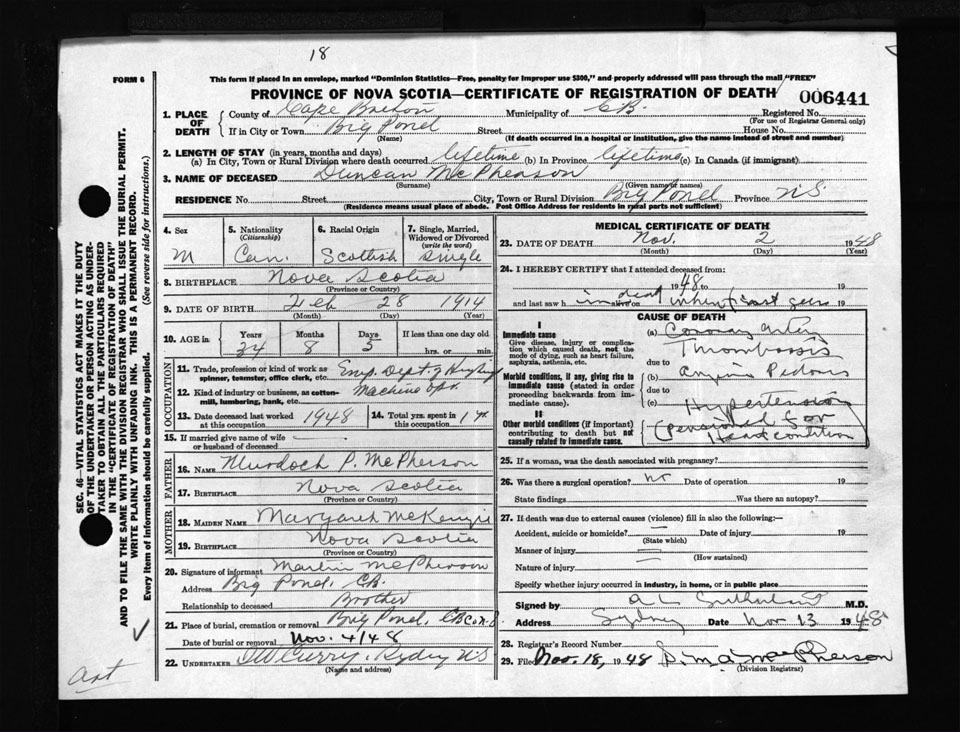 18
FORM 6
This form if placed in an envelope, marked "Dominion Statistics—Free, penalty for improper use $300," and properly addressed will pass through the mail "FREE"
PROVINCE OF NOVA SCOTIA—CERTIFICATE OF REGISTRATION OF DEATH
006441
1. PLACE OF DEATH
County of Cape Breton Municipality of C B. Registered No.
(For use of Registrar General only)
If in City or Town Big Pond Street House No.
(Name) (If death occurred in a hospital or institution, give the name instead of street and number)
2. LENGTH OF STAY (in years, months and days)
(a) In City, Town or Rural Division where death occurred lifetime (b) In Province lifetime (c) In Canada (if immigrant)
3. NAME OF DECEASED Duncan McPherson
(Surname) (Given name or names)
RESIDENCE No. Street City, Town or Rural Division Big Pond Province NS
(Residence means usual place of abode. Post Office Address for residents in rural parts not sufficient)
4. Sex
M
5. Nationality
(Citizenship)
Can.
6. Racial Origin
Scottish
7. Single, Married, Widowed or Divorced
(write the word)
Single
8. BIRTHPLACE Nova Scotia
(Province or Country)
9. DATE OF BIRTH Feb 28 1914
(Month) (Day) (Year)
10. AGE in Years Months Days If less than one day old
34 8 5 hrs. or min.
OCCUPATION
11. Trade, profession or kind of work as spinner, teamster, office clerk, etc. Emp. Dept of
12. Kind of industry or business, as cotton-mill, lumbering, bank, etc. Machine Opr.
13. Date deceased last worked at this occupation 1948
14. Total yrs. spent in this occupation 1 yr.
15. If married give name of wife or husband of deceased
FATHER
16. NAME Murdoch P. McPherson
17. BIRTHPLACE Nova Scotia
(Province or Country)
MOTHER
18. MAIDEN NAME Margaret McKenzie
19. BIRTHPLACE Nova Scotia
(Province or Country)
20. Signature of informant Martin McPherson
Address Big Pond, CB.
Relationship to deceased Brother
21. Place of burial, cremation or removal Big Pond, CB Co N.S
Date of burial or removal Nov. 4/48
22. UNDERTAKER Curry, Sydney NS
(Name and address)
MEDICAL CERTIFICATE OF DEATH
23. DATE OF DEATH Nov. 2 1948
(Month) (Day) (Year)
24. I HEREBY CERTIFY that I attended deceased from:
1948 to 19
and last saw h im alive on dead when first seen 19
CAUSE OF DEATH
I
Immediate cause
Give disease, injury or complication which caused death, not the mode of dying, such as heart failure, asphyxia, asthenia, etc.
(a) Coronary Artery
Thrombosis
due to
Morbid conditions, if any, giving rise to immediate cause (stated in order proceeding backwards from immediate cause).
(b) Angina Pectoris
due to
(c) Hypertension
II
Other morbid conditions (if important) contributing to death but not causally related to immediate cause.
(Pensioned for
Heart condition
25. If a woman, was the death associated with pregnancy?
26. Was there a surgical operation? no Date of operation 19
State findings Was there an autopsy?
27. If death was due to external causes (violence) fill in also the following:—
Accident, suicide or homicide? — Date of injury 19
(State which)
Manner of injury —
(How sustained)
Nature of injury
Specify whether injury occurred in industry, in home, or in public place
Signed by A L Sutherland M.D.
Address Sydney Date Nov 13 1948
28. Registrar's Record Number
29. Filed Nov. 18, 1948 MacPherson
(Division Registrar)
SEC. 46—VITAL STATISTICS ACT MAKES IT THE DUTY
OF THE UNDERTAKER OR PERSON ACTING AS UNDER-
TAKER TO OBTAIN ALL THE PARTICULARS REQUIRED
IN THE "CERTIFICATE OF REGISTRATION OF DEATH"
AND TO FILE THE SAME WITH THE DIVISION REGISTRAR WHO SHALL ISSUE THE BURIAL PERMIT.
WRITE PLAINLY WITH UNFADING INK. THIS IS A PERMANENT RECORD.
Every item of information should be carefully supplied. (See reverse side for instructions.)